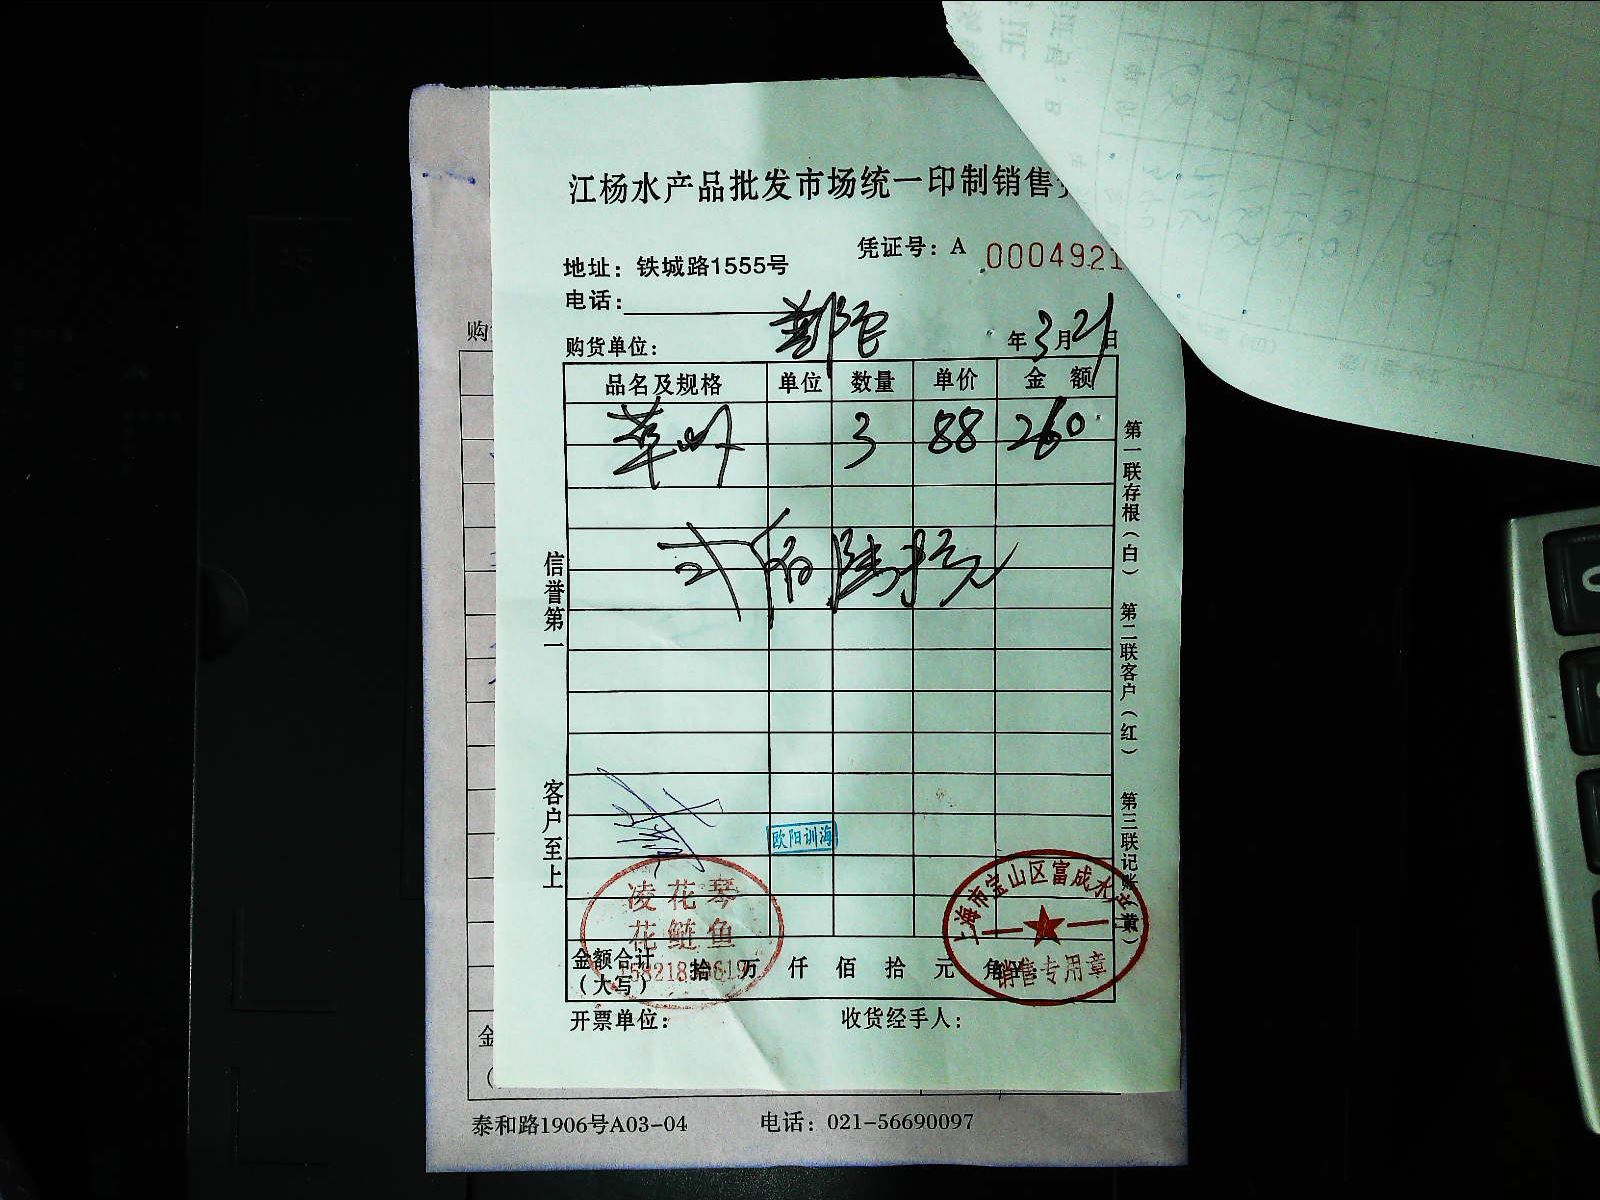 江杨水产品批发市场统一印制销售
凭证号：A 0004921
地址：铁城路1555号
电话：
购货单位：
年3月21日
品名及规格 单位 数量 单价 金额
3 88 260
弍佰陆拾元
信誉第一
客户至上
第一联存根（白） 第二联客户（红） 第三联记账（黄）
欧阳训海
凌花琴
花鲢鱼
上海市宝山区富成水产
销售专用章
金额合计（大写） 拾 万 仟 佰 拾 元 角
开票单位： 收货经手人：
购
金
泰和路1906号A03-04 电话：021-56690097